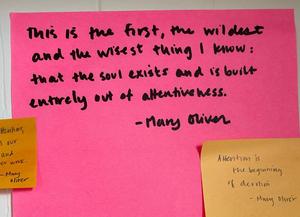 This is the first, the wildest
and the wisest thing I know:
that the soul exists and is built
entirely out of attentiveness.
-Mary Oliver
our
and
-Mary
Oliver
Attention is
the beginning
of devotion
- Mary Oliver